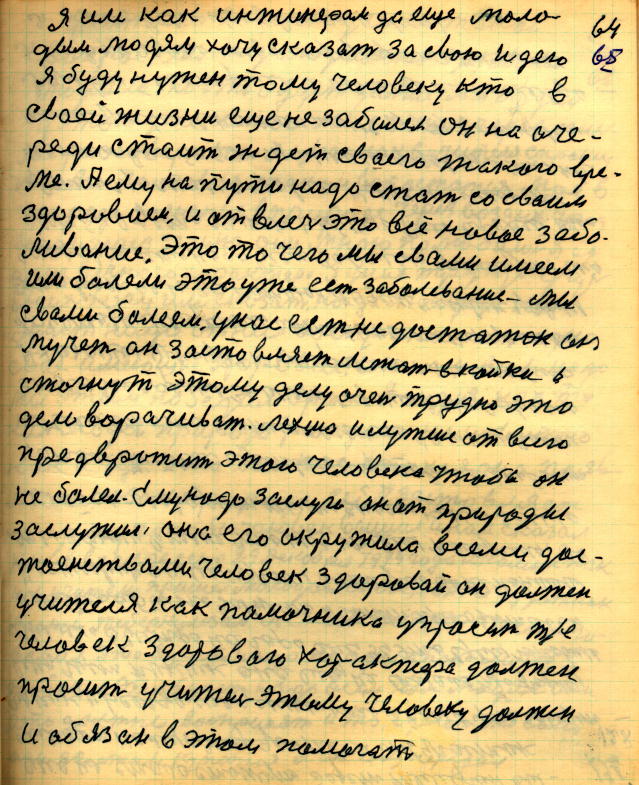 Я им как интинерам да еще моло- 64
дым людям хочу сказат за свою идею 65
Я буду нужен тому человеку кто в
своей жизни еще не заболел он на оче-
реди стаит ждет сваего такого вре-
ме. А ему на пути надо стат со сваим
здоровием, и отвлеч это всё новое забо-
ливание. Это то чего мы свами имеем
или болели это уже ест заболевание - мы
свами болеем, унас ест не достаток он
мучет он застовляет лежат в койки и
стогнут этому делу очен трудно это
дело ворачиват. лехцо и лутше от всего
предвротит этого человека чтобы он
не болел. Ему надо заслуги он от природы
заслужил, она его окружила всеми дос-
тоенствами, человек здоровай он должен
учителя как памочника упросит т/е
человек здорового характера должен
просит учителя этому человеку должен
и обязан в этом помогат